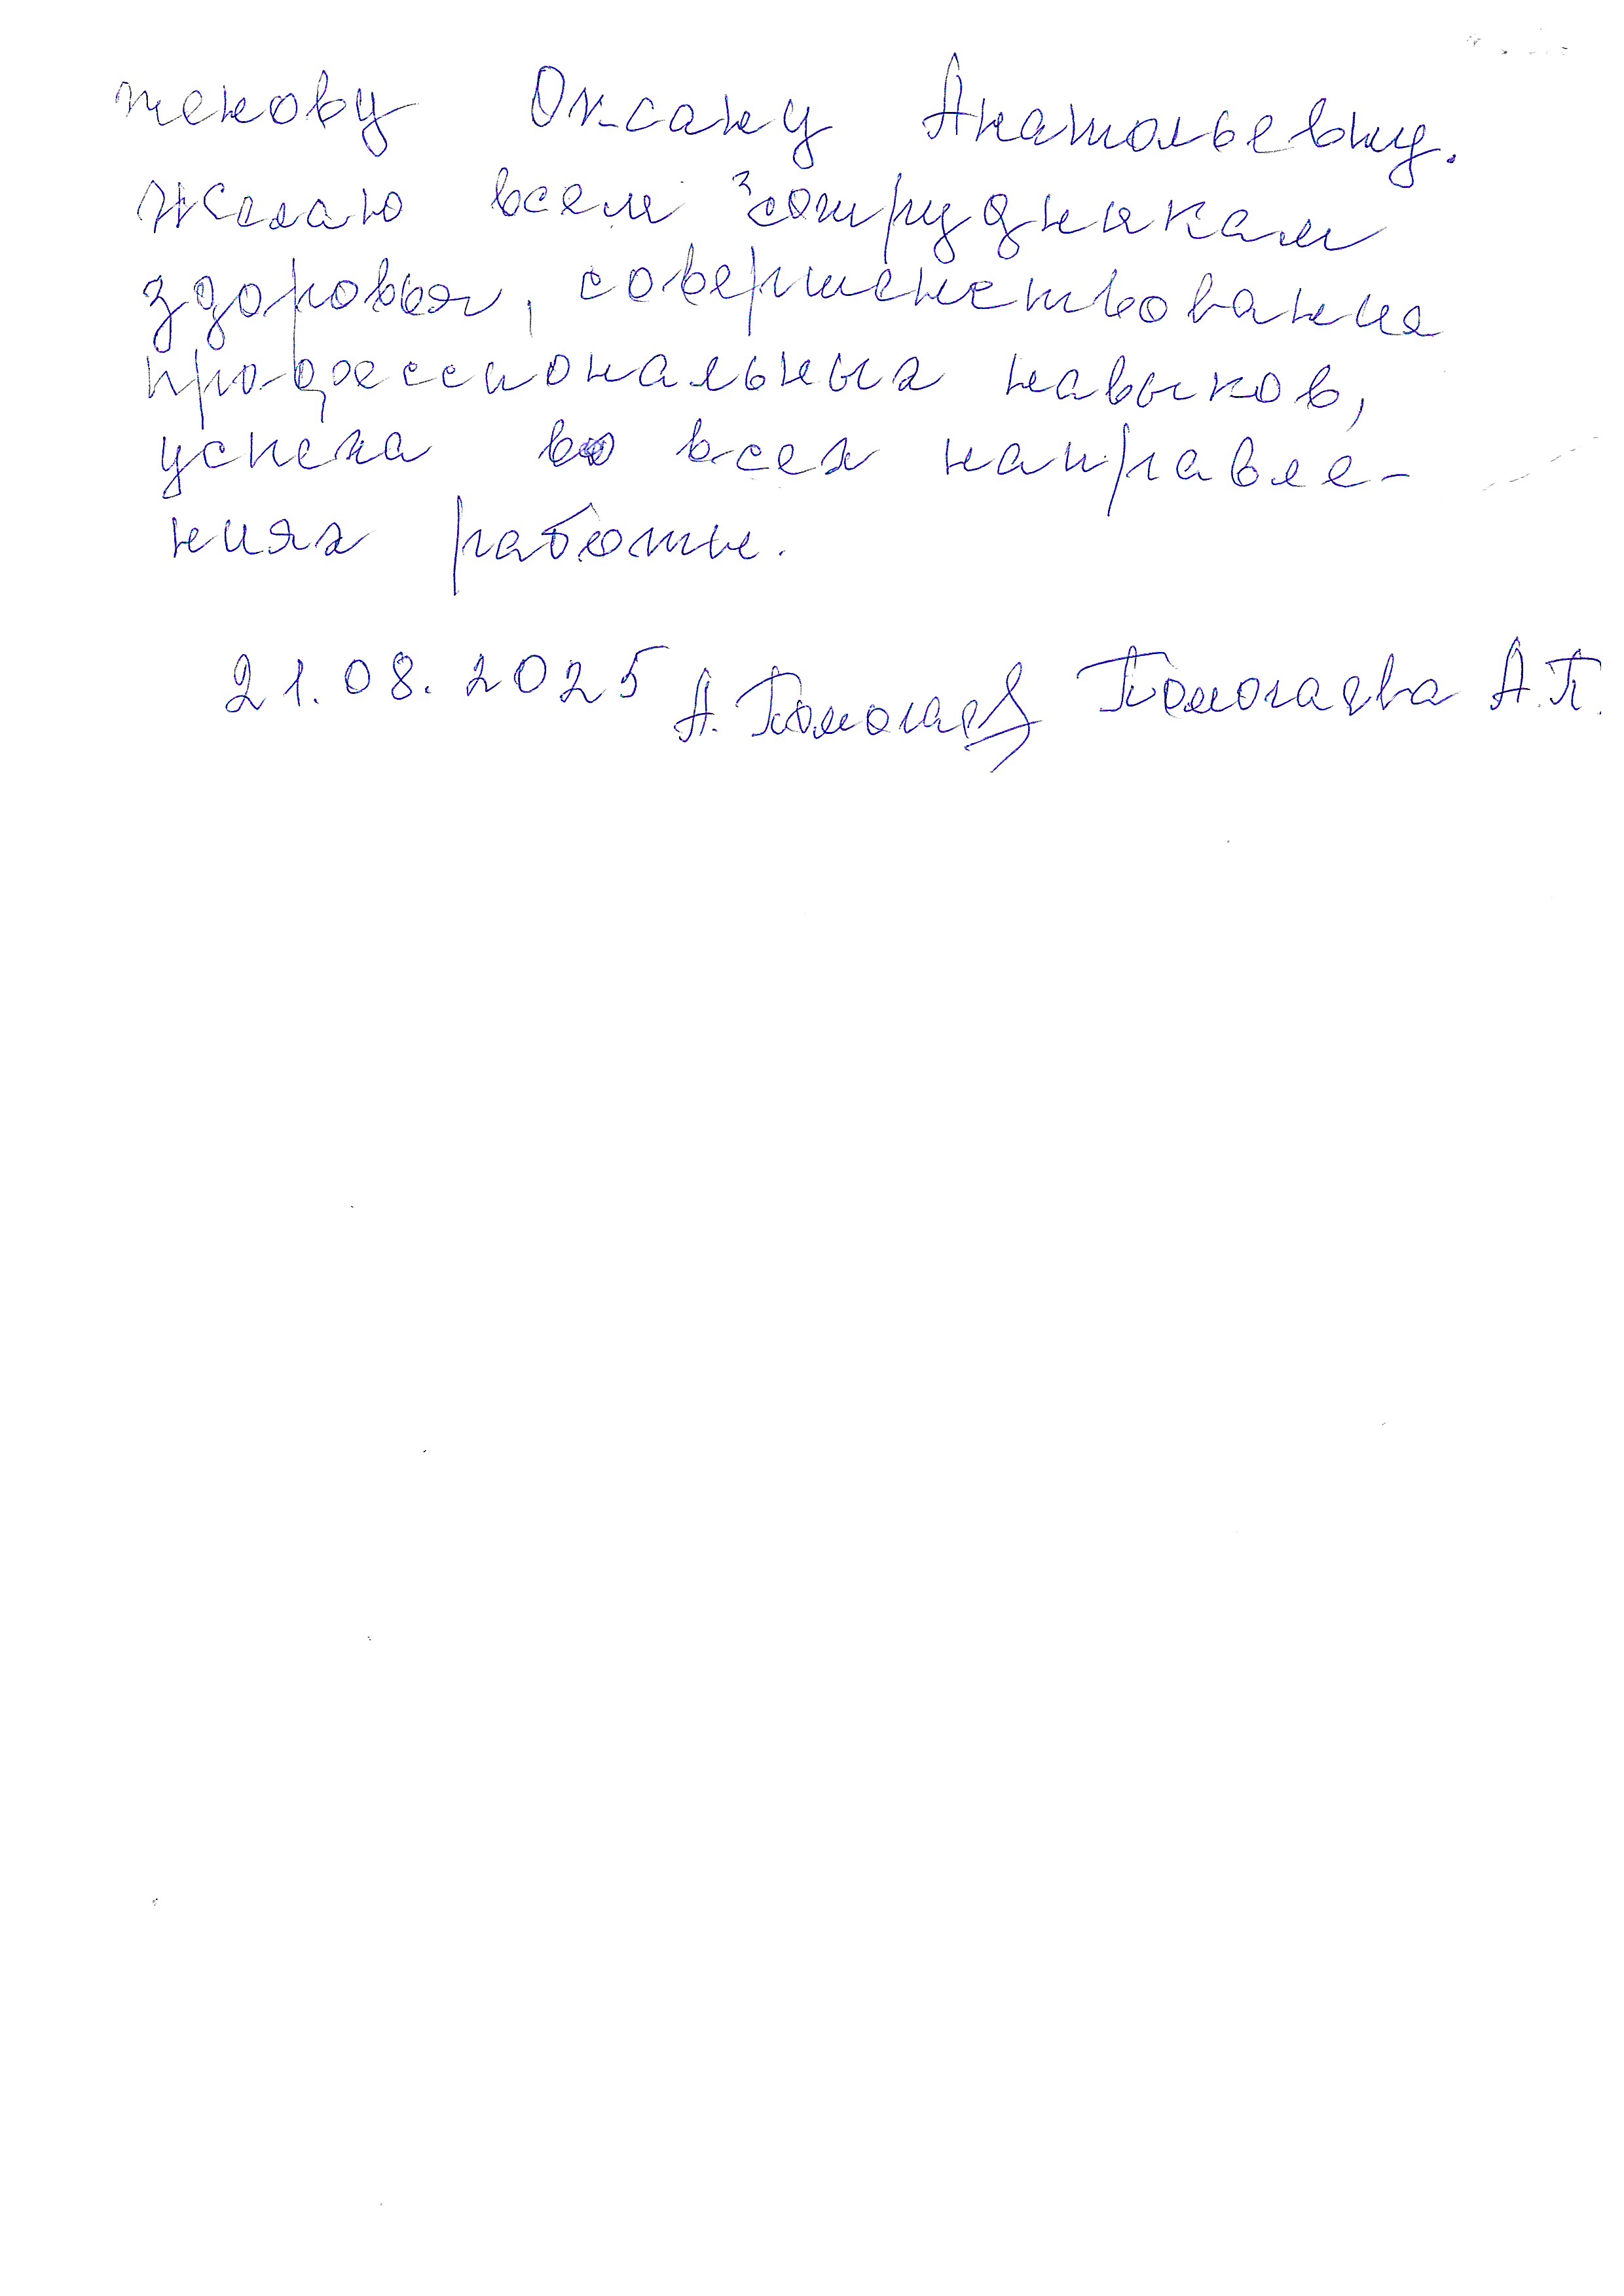 тенову Оксану Анатольевну.
Желаю всем сотрудникам
здоровья, совершенствования
профессиональных навыков,
успеха во всех направле-
ниях работы.
21.08.2025 А. Помогаев Помогаева А.П.